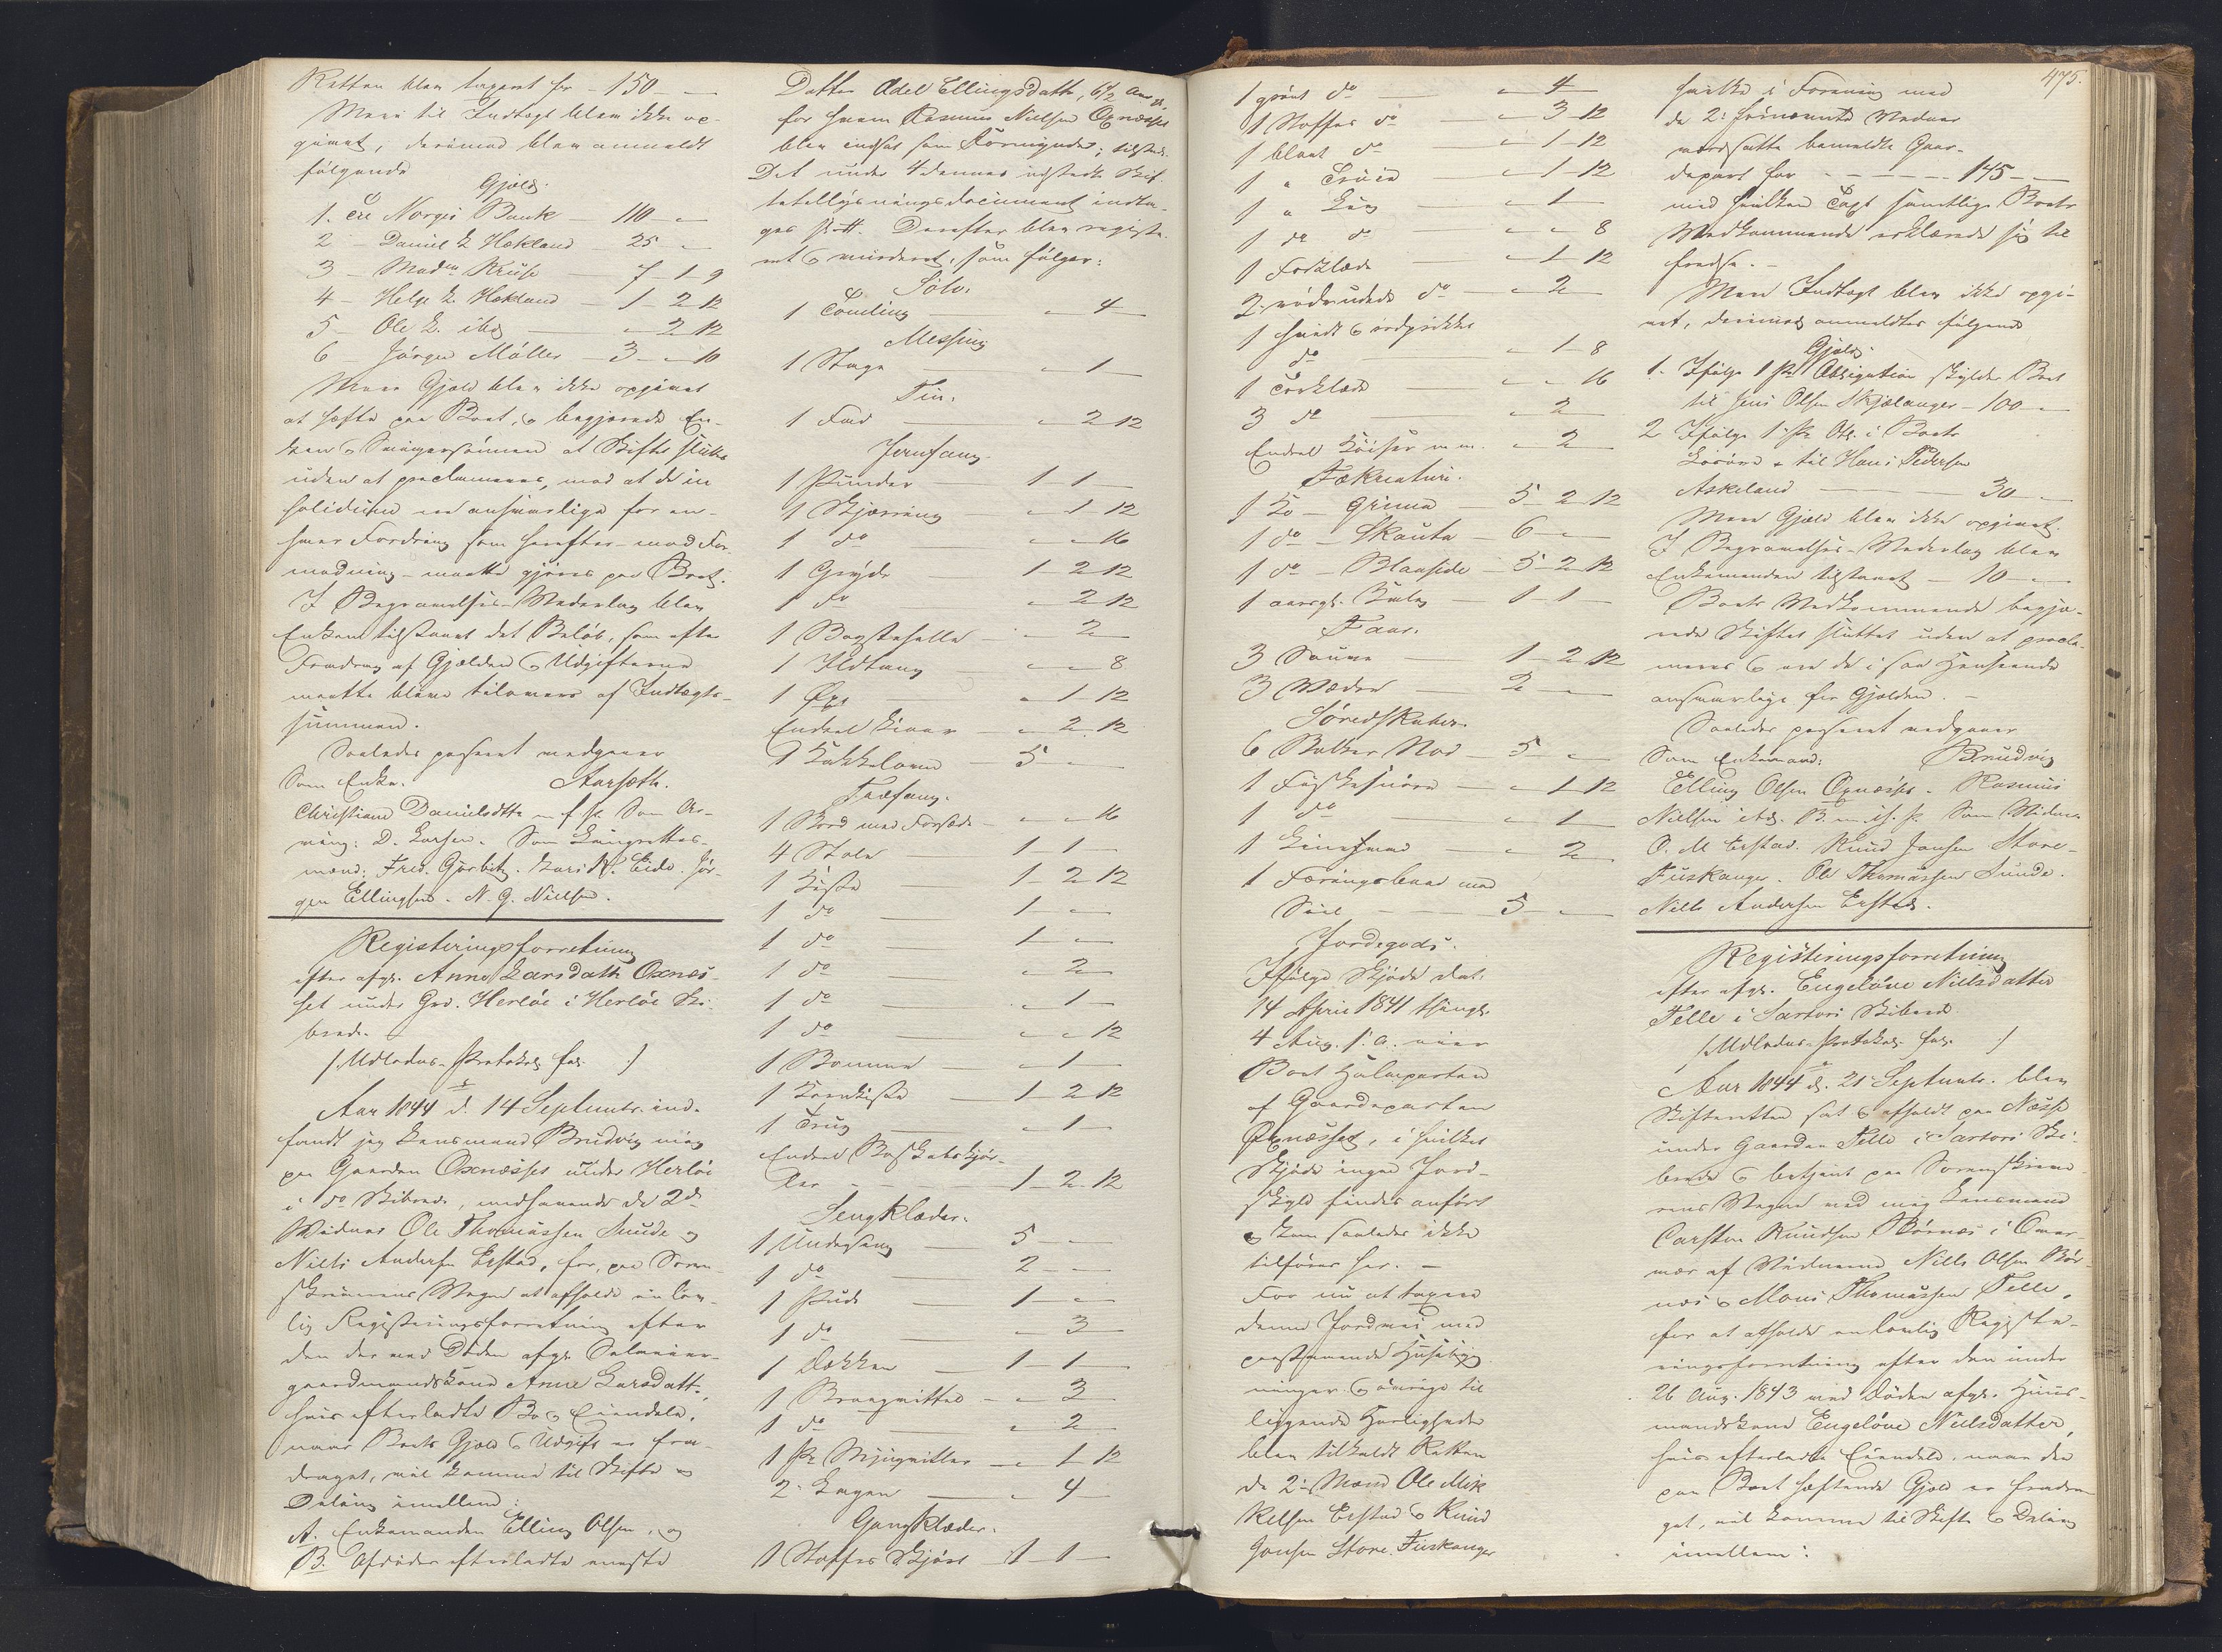 Retten blev taxeret for - 150 - -
Mere til Indtægt blev ikke op-
givet, derimod blev anmeldt
følgende
Gjæld.
1. Til Norges Bank - 110 -
2 - Daniel L. Hekland - 25 -
3 - Madm Kruse - 7 - 1 - 9
4 - Helge L. Hekland - 1 - 2 - 12
5 - Ole L. ibd - - 2 - 12
6 - Jørgen Møller - 3 - - 10
Mere Gjæld blev ikke opgivet
at hæfte paa Boet, og begjærede En-
ken og Svigersønnen at Skiftet sluttes
uden at proclameres, mod at de in
solidum ere ansvarlige for en-
hver Fordring som herefter - mod For-
modning - maatte gjøres paa Boet.
I Begravelses-Vederlag blev
Enken tilstaaet det Beløb, som efter
Fradrag af Gjælden og Udgifterne
maatte blive tilovers af Indtægts-
summen.
Saaledes passeret vedgaaer
Som Enke. Aarseth.
Christiane Danielsdtter m. f. P. Som Ar-
ving: D. Larsen. Som Laugrettes-
mænd: Fred. Gjørbitz. Lars N. Eide. Jør-
gen Ellingsen. N. G. Nielsen.
Registeringsforretning
efter afg. Anne Larsdatter Oxnæs-
set under Grd. Herløe i Herløe Ski-
brede.
/: Udlodns-Protokol fol. :/
Aar 1844 d. 14 Septembr. ind-
fandt jeg Lensmand Brudvig mig
paa Gaarden Oxnæsset under Herløe
i do Skibrede, medhavende de 2de
Vidner Ole Thomassen Sunde og
Niels Andersen Erstad, for, paa Soren-
skriverens Vegne at afholde en lov-
lig Registeringsforretning efter
den der ved Døden afg.
gaardmandskone Anne Larsdatt.,
hvis efterladte Bo og Eiendele,
naar Boets Gjæld og Udgift er fra-
draget, vil komme til Skifte og
Deling imellem:
A. Enkemanden Elling Olsen, og
B. Afdødes efterladte eneste
Datter Adel Ellingsdatt., 6 1/2 Aar gl.
for hvem Rasmus Nielsen Oxnæsset
blev indsat som Formynder; tilstede.
Det under 4 dennes udstedte Skif-
tetillysningsdocument indta-
ges pr. #. Derefter blev registe-
ret og vurderet, som følger:
Sølv.
1 Tomling - 4 -
Messing
1 Stage - 1 -
Tin.
1 Fad - 2 - 12
Jernfang.
1 Punder 1 - 1 -
1 Skjæring - 1 - 12
1 do - - 16
1 Gryde 1 - 2 - 12
1 do - 2 - 12
1 Bagstehelle - 2 -
1 Ildtang - - 8
1 Øxe - 1 - 12
Endeel Livar - 2 - 12
1 Kakkelovn 5 - -
Træfang.
1 Bord med Forsæde - - 16
4 Stole 1 - 1 -
1 Kiste 1 - 2 - 12
1 do 1 - -
1 do 1 - -
1 do - 2 -
1 do - 1 -
1 do - - 12
1 Bomme - 1 -
1 Kornkiste 1 - 2 - 12
1 Trug - 1 -
Endeel Boskabskjør-
ler - - 1 - 2 - 12
Sengklæder.
1 Undersæng 5 - -
1 do 2 - -
1 Pude 1 - -
1 do - 3 -
1 Dækken 1 - 1 -
1 Brogvittel - 3 -
1 do - 2 -
1 Pr - 1 - 12
2 Lagen - 4 -
Gangklæder.
1 Stoffes Skjørt 1 - 1 -
475.
1 grønt do - 4 -
1 Stoffes do - 3 - 12
1 blaat do - 1 - 12
1 " Trøie - 1 - 12
1 " Liv - 1 -
1 do do - - 8
1 Forklæde - 1 - 12
2 rødrudede do - 2 -
1 hvidt og rødprikket
do - 1 - 8
1 Tørklæde - - 16
3 do - 2 -
Endeel Køiser m.m. - 2 -
Fækreaturer.
1 Ko - Grima - 5 - 2 - 12
1 do - Skauta - 6 - -
1 do - Blaaside - 5 - 2 - 12
1 aarsgl. Kalv - 1 - 1 -
Faar.
3 Sauer 1 - 2 - 12
3 Væder 2 - -
Søredskaber.
6 Bolker Nod - 5 - -
1 Fiskesnøre - 1 - 12
1 do - 1 -
1 Linestand - 2 -
1 Færingsbaad med
Seil - 5 - -
Jordegods.
Ifølge Skjøde dat.
14 April 1841 thingl.
4 Aug. s. a. eier
Boet Halvparten
af Gaardeparten
Oxnæsset, i hvilket
Skjøde ingen Jord-
skyld findes anført
og kan saaledes ikke
tilføres her. -
For nu at taxere
denne Jordvei med
paastaaende Husebyg-
ninger og øvrige til
liggende Herligheder
blev tilkaldt Retten
de 2de Mænd Ole Mik-
kelsen Erstad og Knud
Jansen Store Fuskanger
hvilke i Forening med
de 2de førnævnte Vidner
værdsatte bemeldte Gaar-
depart for - - - - 145 - -
med hvilken Taxt samtlige Boets
Vedkommende erklærede sig til
freds. -
Mere Indtægt blev ikke opgi-
vet, derimod anmeldtes følgende
Gjæld.
1. Ifølge 1 Pr. Obligation skylder Boet
til Jens Olsen Skjælanger - 100 -
2 Ifølge 1 Pr. Obl. i Boets
Løsøre - til Hans Pedersen
Askeland 30 - -
Mere Gjæld blev ikke opgivet.
I Begravelses-Vederlag blev
Enkemanden tilstaaet - 10 - -
Boets Vedkommende begjæ-
rede Skiftet sluttet uden at procla-
meres og ere de i saa Henseende
ansvarlige for Gjælden. -
Saaledes passeret vedgaaer
Som Enkemand: Brudvig
Elling Olsen Oxnæsset. Rasmus
Nielsen ibd. B. m. if. P. Som Vidner
O. M Erstad. Knud Jansen Store-
Fuskanger. Ole Thomassen Sunde.
Niels Andersen Erstad.
Registeringsforretning
efter afg. Engeløve Nielsdatter
Telle i Sartors Skibred.
/: Udlodns-Protokol fol. :/
Aar 1844 d. 21 Septembr. blev
Skifteretten sat og afholdt paa Næsse
under Gaarden Telle i Sartors Ski-
brede og betjent paa Sorenskrive-
rens Vegne ved mig Lensmand
Carsten Knudsen Børnæs i Over-
vær af Vidnerne Niels Olsen Bør-
næs og Mons Thomassen Telle,
for at afholde en lovlig Registe-
ringsforretning efter den under
26 Aug. 1843 ved Døden afg. Huus-
mandskone Engeløve Nielsdatter,
hvis efterladte Eiendele, naar den
paa Boet hæftende Gjæld er fradra-
get, vil komme til Skifte og Deling
imellem: